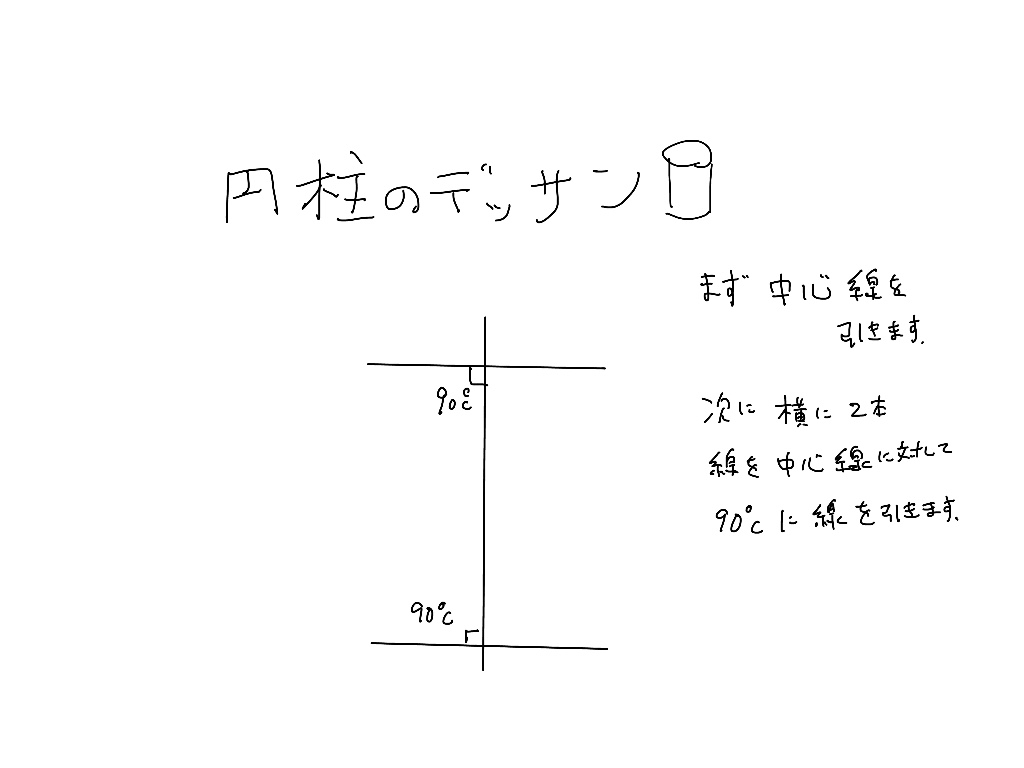 円柱のデッサン
まず 中心 線を
引きます.
90℃
次に 横に 2本
線を 中心 線に対して
90℃ に 線を引きます.
90℃